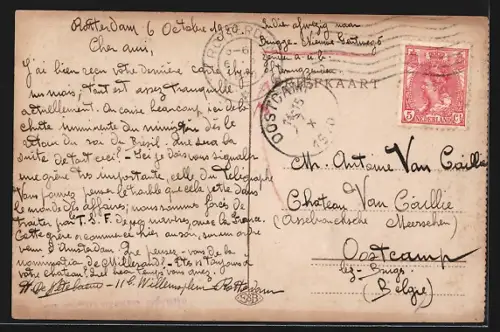 Rotterdam 6 Octobre 1920
Cher ami,
J'ai bien reçu votre dernière carte il y a
un mois, tout est assez tranquille
actuellement. On cause beaucoup ici de la
chute imminente du ministère dès le
retour du roi du Brésil. Que sera la
suite de tout ceci - Ici je dois vous signaler
une grève très importante, celle du Télégraphe
Vous pouvez penser le trouble que cela jette dans
le monde des affaires, nous sommes forcés de
traiter par T.S.F. de nos navires avec la France.
Cette grève a commencé hier au soir, sur un ordre
venu d'Amsterdam Que pensez-vous de la
nomination de Millerand? Etes vous toujours à
votre chateau? Quel beau temps vous avez.
116 Willemsplein Rotterdam
Brugge
BRIEFKAART
OOSTCAMP
15
X
NEDERLAND
5 Ct
Mr. Antoine Van Caillie
Chateau Van Caillie
(Assebroucksche Meerschen)
Oostcamp
lez-Bruges
(Belgie)